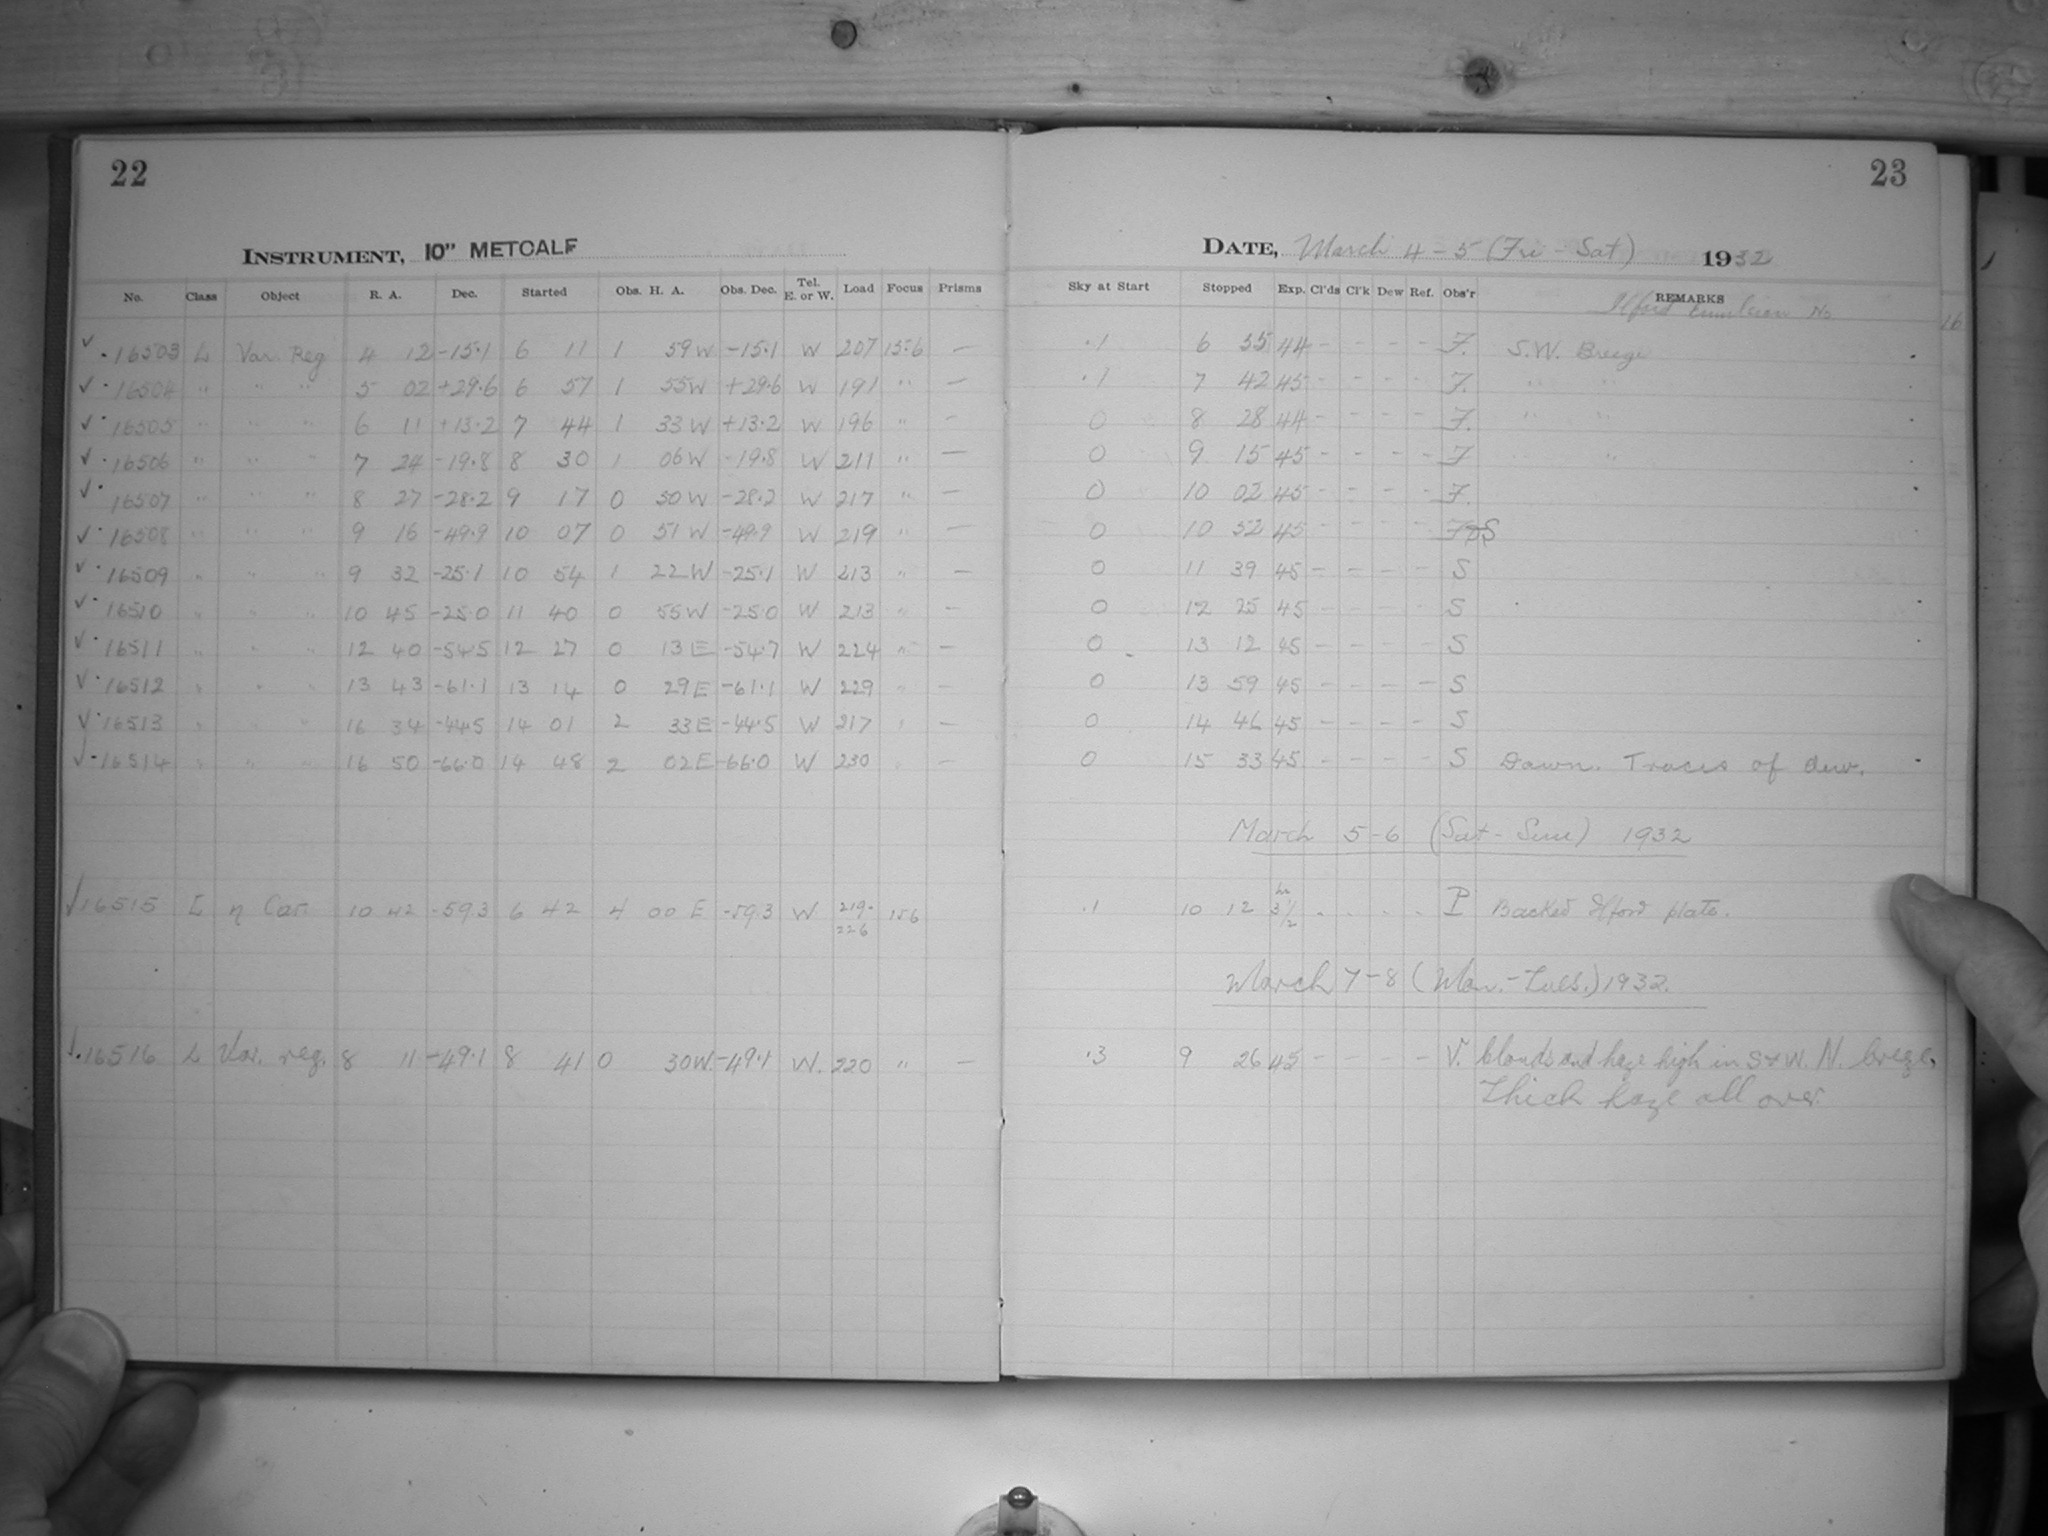 22
INSTRUMENT, 10" METCALF
No. Class Object R. A. Dec. Started Obs. H. A. Obs. Dec. Tel. E. or W. Load Focus Prisms
✓ 16503 L Var. Reg 4 12 -15.1 6 11 1 59 W -15.1 W 207 15.6 —
✓ 16504 " " " 5 02 +29.6 6 57 1 55 W +29.6 W 191 " —
✓ 16505 " " " 6 11 +13.2 7 44 1 33 W +13.2 W 196 " —
✓ 16506 " " " 7 24 -19.8 8 30 1 06 W -19.8 W 211 " —
✓ 16507 " " " 8 27 -28.2 9 17 0 50 W -28.2 W 217 " —
✓ 16508 " " " 9 16 -49.9 10 07 0 51 W -49.9 W 219 " —
✓ 16509 " " " 9 32 -25.1 10 54 1 22 W -25.1 W 213 " —
✓ 16510 " " " 10 45 -25.0 11 40 0 55 W -25.0 W 213 " —
✓ 16511 " " " 12 40 -54.5 12 27 0 13 E -54.7 W 224 " —
✓ 16512 " " " 13 43 -61.1 13 14 0 29 E -61.1 W 229 " —
✓ 16513 " " " 16 34 -44.5 14 01 2 33 E -44.5 W 217 " —
✓ 16514 " " " 16 50 -66.0 14 48 2 02 E -66.0 W 230 " —
✓ 16515 L η Car. 10 42 -59.3 6 42 4 00 E -59.3 W 219-226 15.6
✓ 16516 L Var. reg. 8 11 -49.1 8 41 0 30 W. -49.1 W. 220 " —
23
DATE, March 4-5 (Fri - Sat) 1932
Sky at Start Stopped Exp. Cl'ds Cl'k Dew Ref. Obs'r REMARKS
Ilford Emulsion No.
16
.1 6 55 44 - - - - F. S.W. Breeze
.1 7 42 45 - - - - F. " "
0 8 28 44 - - - - F. " "
0 9 15 45 - - - - F "
0 10 02 45 - - - - F.
0 10 52 45 - - - - F&S
0 11 39 45 - - - - S
0 12 25 45 - - - - S
0 13 12 45 - - - - S
0 13 59 45 - - - - S
0 14 46 45 - - - - S
0 15 33 45 - - - - S Dawn. Traces of dew.
March 5-6 (Sat - Sun) 1932
.1 10 12 3 1/2 hr . . . . P Backed Ilford plate.
March 7-8 (Mon. - Tues.) 1932.
.3 9 26 45 - - - - V. Clouds and haze high in S & W. N. breeze,
Thick haze all over.